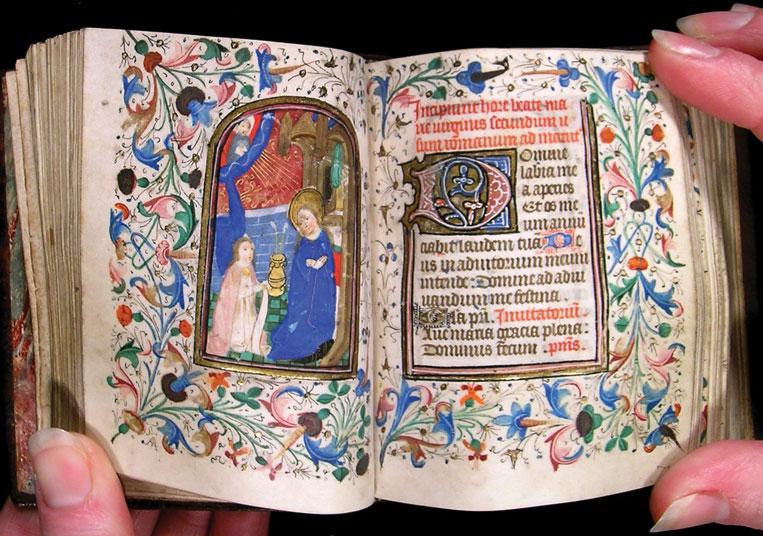 Incipiunt hore beate ma
rie virginis secundum u
sum romanum ad matut
Domine
labia me
a aperies
Et os me
um annu
ciabit laudem tuā De
us in adiutorium meum
intende Domine ad adiu
vandum me festina
Gla pri Invitatoriū
Ave maria gracia plena
Dominus tecum ps̄